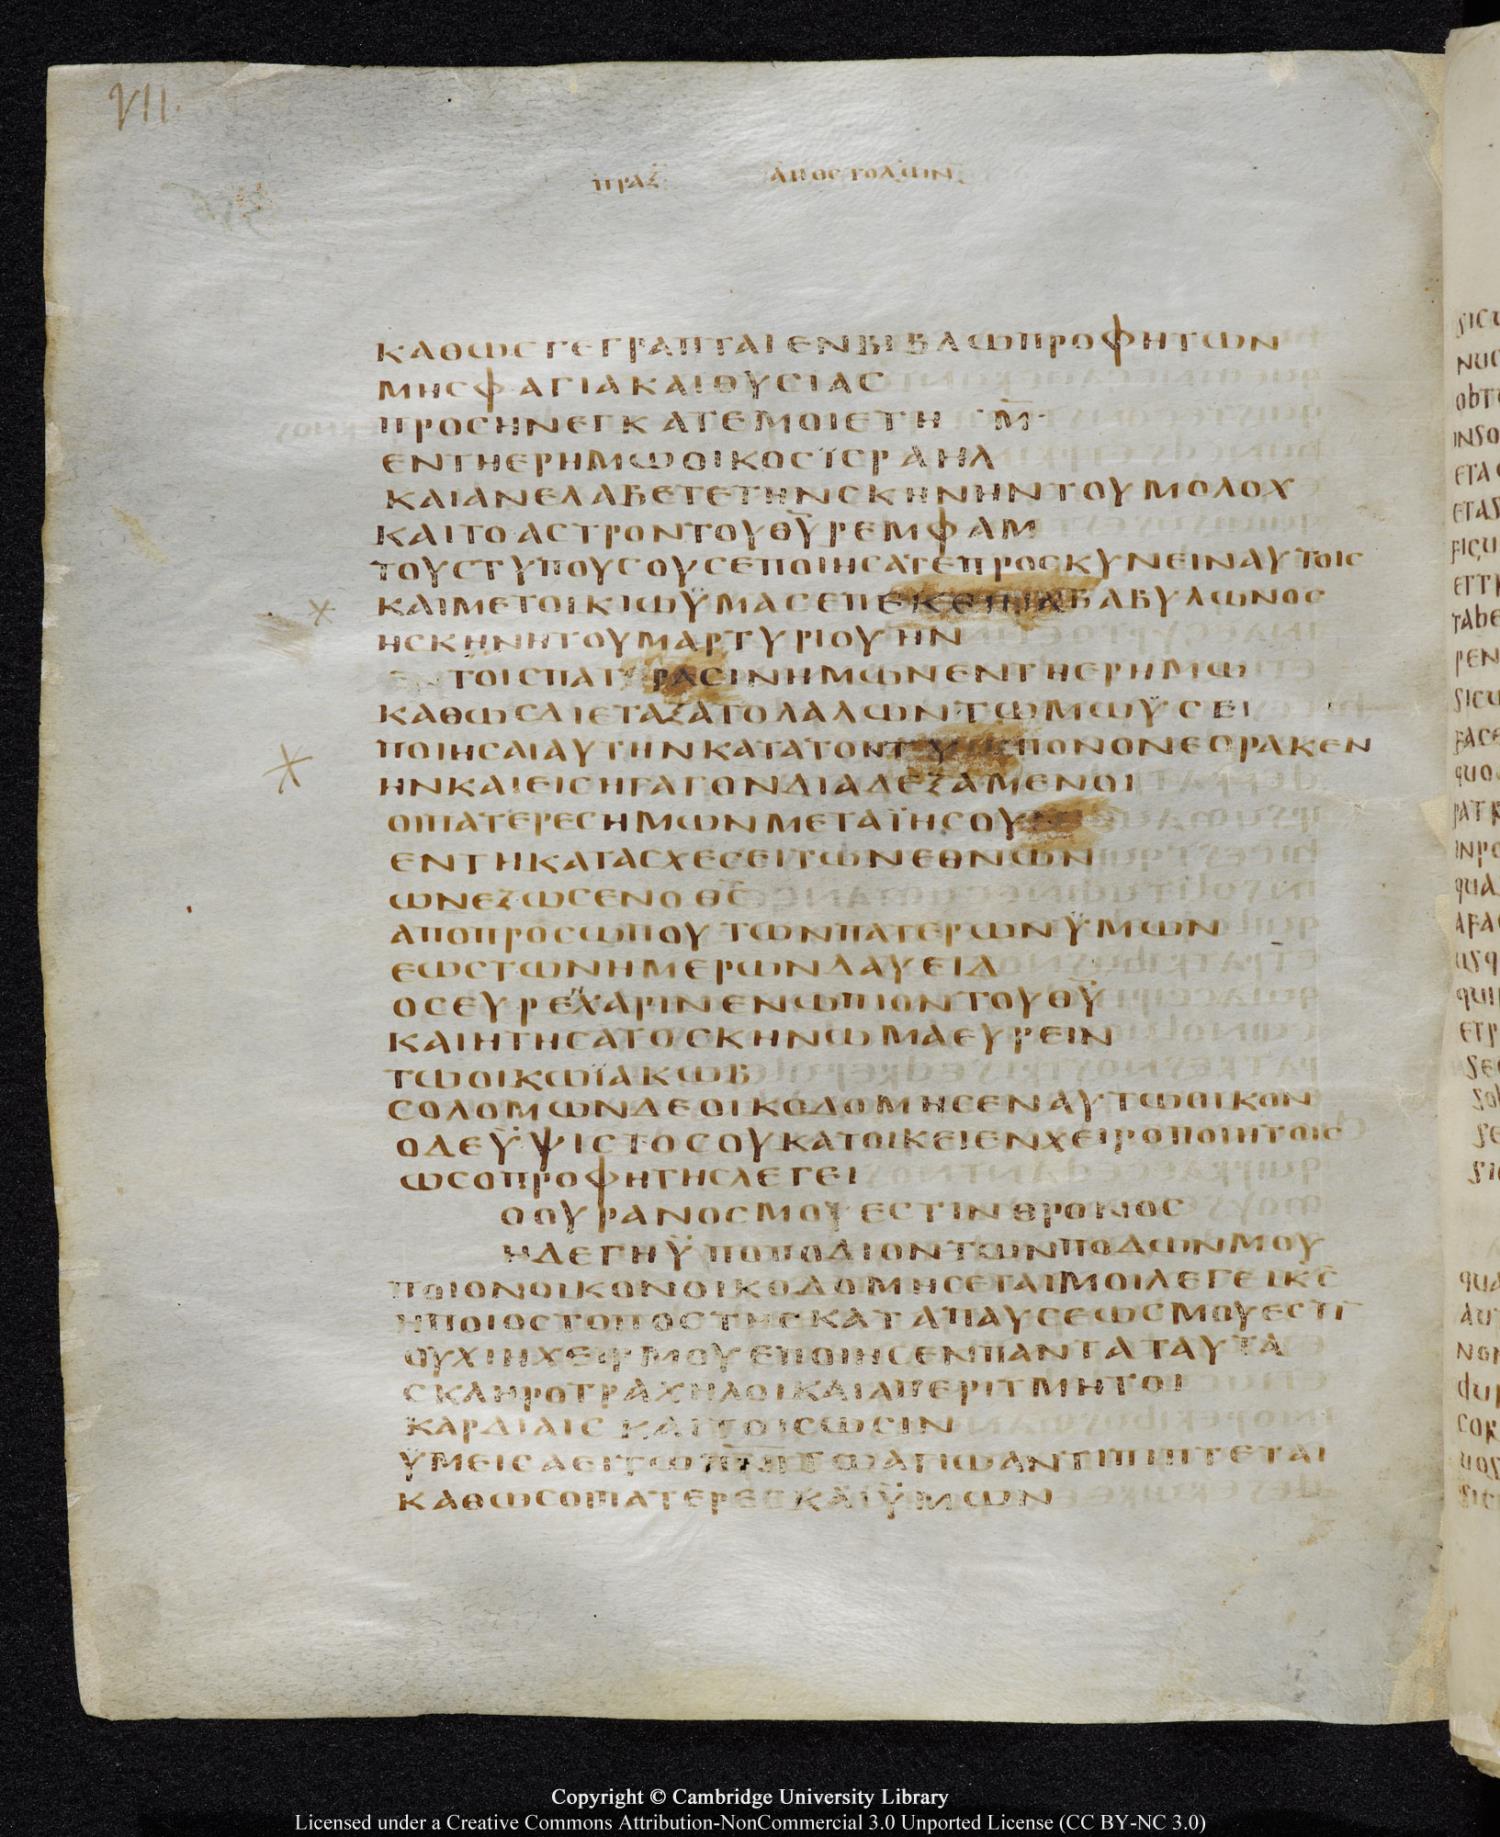 VII.
ΠΡΑΞ ΑΠΟΣΤΟΛΩΝ
ΚΑΘΩϹΓΕΓΡΑΠΤΑΙΕΝΒΙΒΛΩΠΡΟΦΗΤΩΝ
ΜΗϹΦΑΓΙΑΚΑΙΘΥϹΙΑϹ
ΠΡΟϹΗΝΕΓΚΑΤΕΜΟΙΕΤΗ Μ̅·
ΕΝΤΗΕΡΗΜΩΟΙΚΟϹΪϹΡΑΗΛ
ΚΑΙΑΝΕΛΑΒΕΤΕΤΗΝϹΚΗΝΗΝΤΟΥΜΟΛΟΧ
ΚΑΙΤΟΑϹΤΡΟΝΤΟΥΘ̅Υ̅ΡΕΜΦΑΜ
ΤΟΥϹΤΥΠΟΥϹΟΥϹΕΠΟΙΗϹΑΤΕΠΡΟϹΚΥΝΕΙΝΑΥΤΟΙϹ
ΚΑΙΜΕΤΟΙΚΙΩΫΜΑϹΕΠΕΚΕΙΝΑΒΑΒΥΛΩΝΟϹ
ΗϹΚΗΝΗΤΟΥΜΑΡΤΥΡΙΟΥΗΝ
ΕΝΤΟΙϹΠΑΤΡΑϹΙΝΗΜΩΝΕΝΤΗΕΡΗΜΩ
ΚΑΘΩϹΔΙΕΤΑΞΑΤΟΛΑΛΩΝΤΩΜΩΫϹΕΙ
ΠΟΙΗϹΑΙΑΥΤΗΝΚΑΤΑΤΟΝΤΥΠΟΝΟΝΕΟΡΑΚΕΝ
ΗΝΚΑΙΕΙϹΗΓΑΓΟΝΔΙΑΔΕΞΑΜΕΝΟΙ
ΟΙΠΑΤΕΡΕϹΗΜΩΝΜΕΤΑΪΗϹΟΥ
ΕΝΤΗΚΑΤΑϹΧΕϹΕΙΤΩΝΕΘΝΩΝ
ΩΝΕΞΩϹΕΝΟΘ̅Ϲ̅
ΑΠΟΠΡΟϹΩΠΟΥΤΩΝΠΑΤΕΡΩΝΫΜΩΝ
ΕΩϹΤΩΝΗΜΕΡΩΝΔΑΥΕΙΔ
ΟϹΕΥΡΕΧΑΡΙΝΕΝΩΠΙΟΝΤΟΥΘ̅Υ̅
ΚΑΙΗΤΗϹΑΤΟϹΚΗΝΩΜΑΕΥΡΕΙΝ
ΤΩΟΙΚΩΪΑΚΩΒ
ϹΟΛΟΜΩΝΔΕΟΙΚΟΔΟΜΗϹΕΝΑΥΤΩΟΙΚΟΝ
ΟΔΕΫΨΙϹΤΟϹΟΥΚΑΤΟΙΚΕΙΕΝΧΕΙΡΟΠΟΙΗΤΟΙϹ
ΩϹΟΠΡΟΦΗΤΗϹΛΕΓΕΙ
ΟΟΥΡΑΝΟϹΜΟΥΕϹΤΙΝΘΡΟΝΟϹ
ΗΔΕΓΗΫΠΟΠΟΔΙΟΝΤΩΝΠΟΔΩΝΜΟΥ
ΠΟΙΟΝΟΙΚΟΝΟΙΚΟΔΟΜΗϹΕΤΑΙΜΟΙΛΕΓΕΙΚ̅Ϲ̅
ΗΠΟΙΟϹΤΟΠΟϹΤΗϹΚΑΤΑΠΑΥϹΕΩϹΜΟΥΕϹΤΙ
ΟΥΧΙΗΧΕΙΡΜΟΥΕΠΟΙΗϹΕΝΠΑΝΤΑΤΑΥΤΑ
ϹΚΛΗΡΟΤΡΑΧΗΛΟΙΚΑΙΑΠΕΡΙΤΜΗΤΟΙ
ΚΑΡΔΙΑΙϹΚΑΙΤΟΙϹΩϹΙΝ
ΫΜΕΙϹΑΕΙΤΩΠ̅Ν̅Ι̅ΤΩΑΓΙΩΑΝΤΙΠΙΠΤΕΤΑΙ
ΚΑΘΩϹΟΙΠΑΤΕΡΕϹΚΑΙΫΜΩΝ
Copyright © Cambridge University Library
Licensed under a Creative Commons Attribution-NonCommercial 3.0 Unported License (CC BY-NC 3.0)